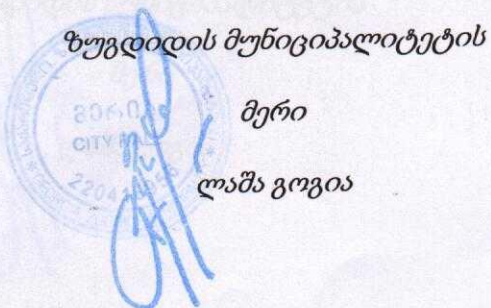 ზუგდიდის მუნიციპალიტეტის
მერი
ლაშა გოგია
მერი
CITY